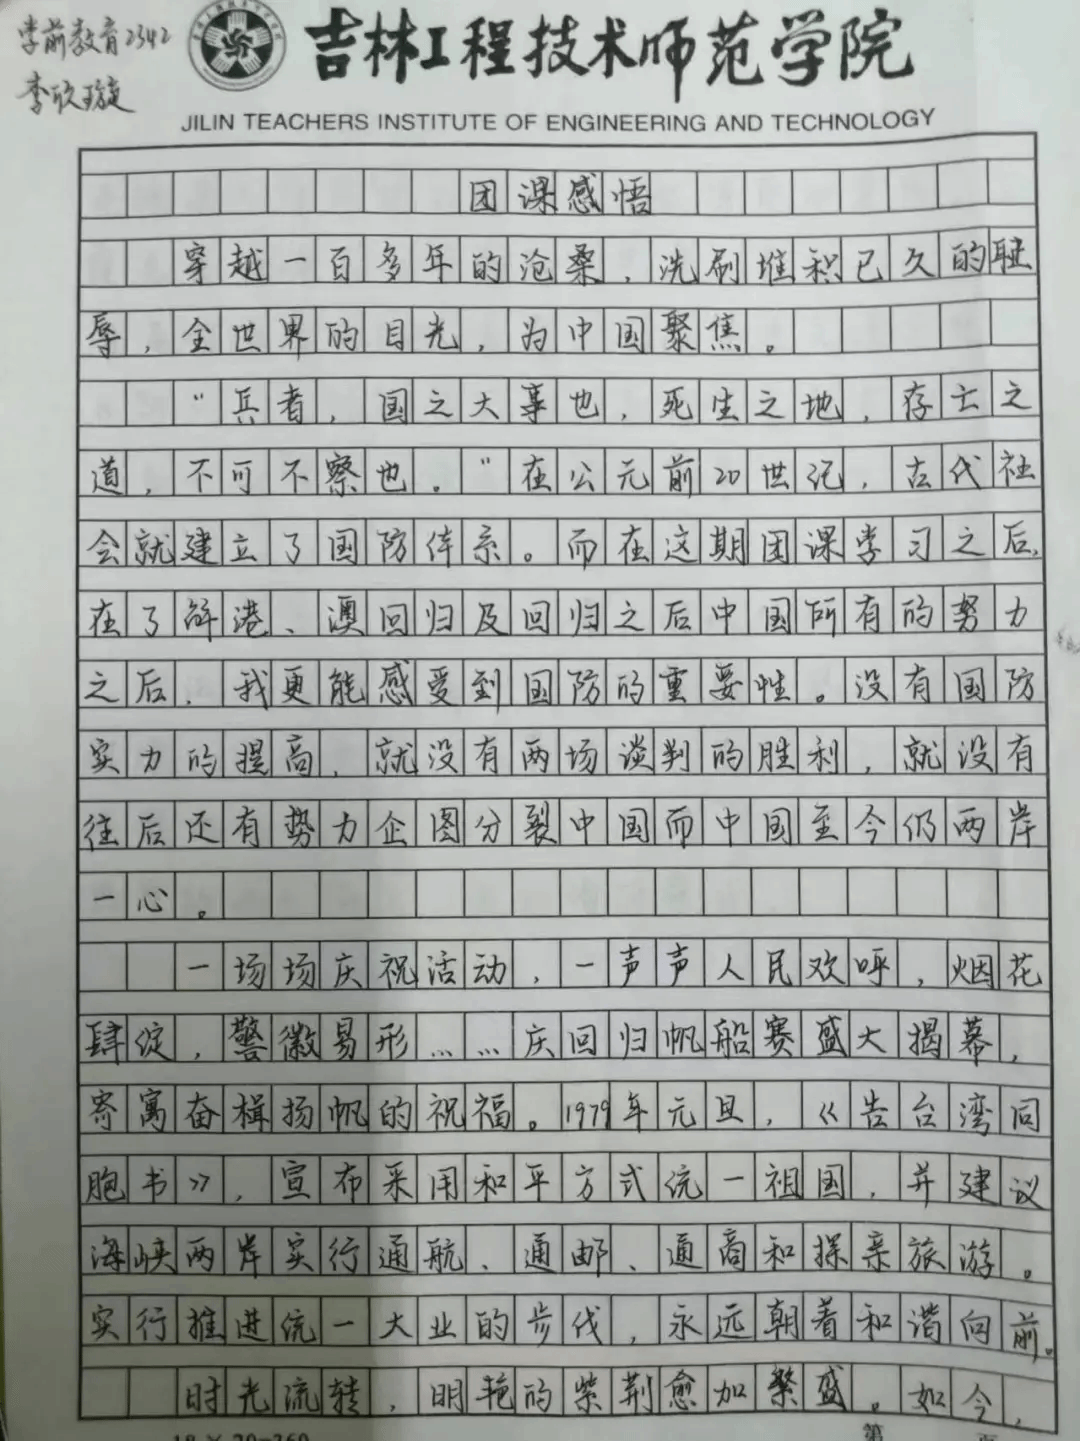 学前教育2342
李欣璇
吉林工程技术师范学院
JILIN TEACHERS INSTITUTE OF ENGINEERING AND TECHNOLOGY
团课感悟
穿越一百多年的沧桑，洗刷堆积已久的耻
辱，全世界的目光，为中国聚焦。
“兵者，国之大事也，死生之地，存亡之
道，不可不察也。”在公元前20世纪，古代社
会就建立了国防体系。而在这期团课学习之后，
在了解港、澳回归及回归之后中国所有的努力
之后，我更能感受到国防的重要性。没有国防
实力的提高，就没有两场谈判的胜利，就没有
往后还有势力企图分裂中国而中国至今仍两岸
一心。
一场场庆祝活动，一声声人民欢呼，烟花
肆绽，警徽易形……庆回归帆船赛盛大揭幕，
寄寓奋楫扬帆的祝福。1979年元旦，《告台湾同
胞书》，宣布采用和平方式统一祖国，并建议
海峡两岸实行通航、通邮、通商和探亲旅游。
实行推进统一大业的步伐，永远朝着和谐向前。
时光流转，明艳的紫荆愈加繁盛。如今，
18×20=360
第 页